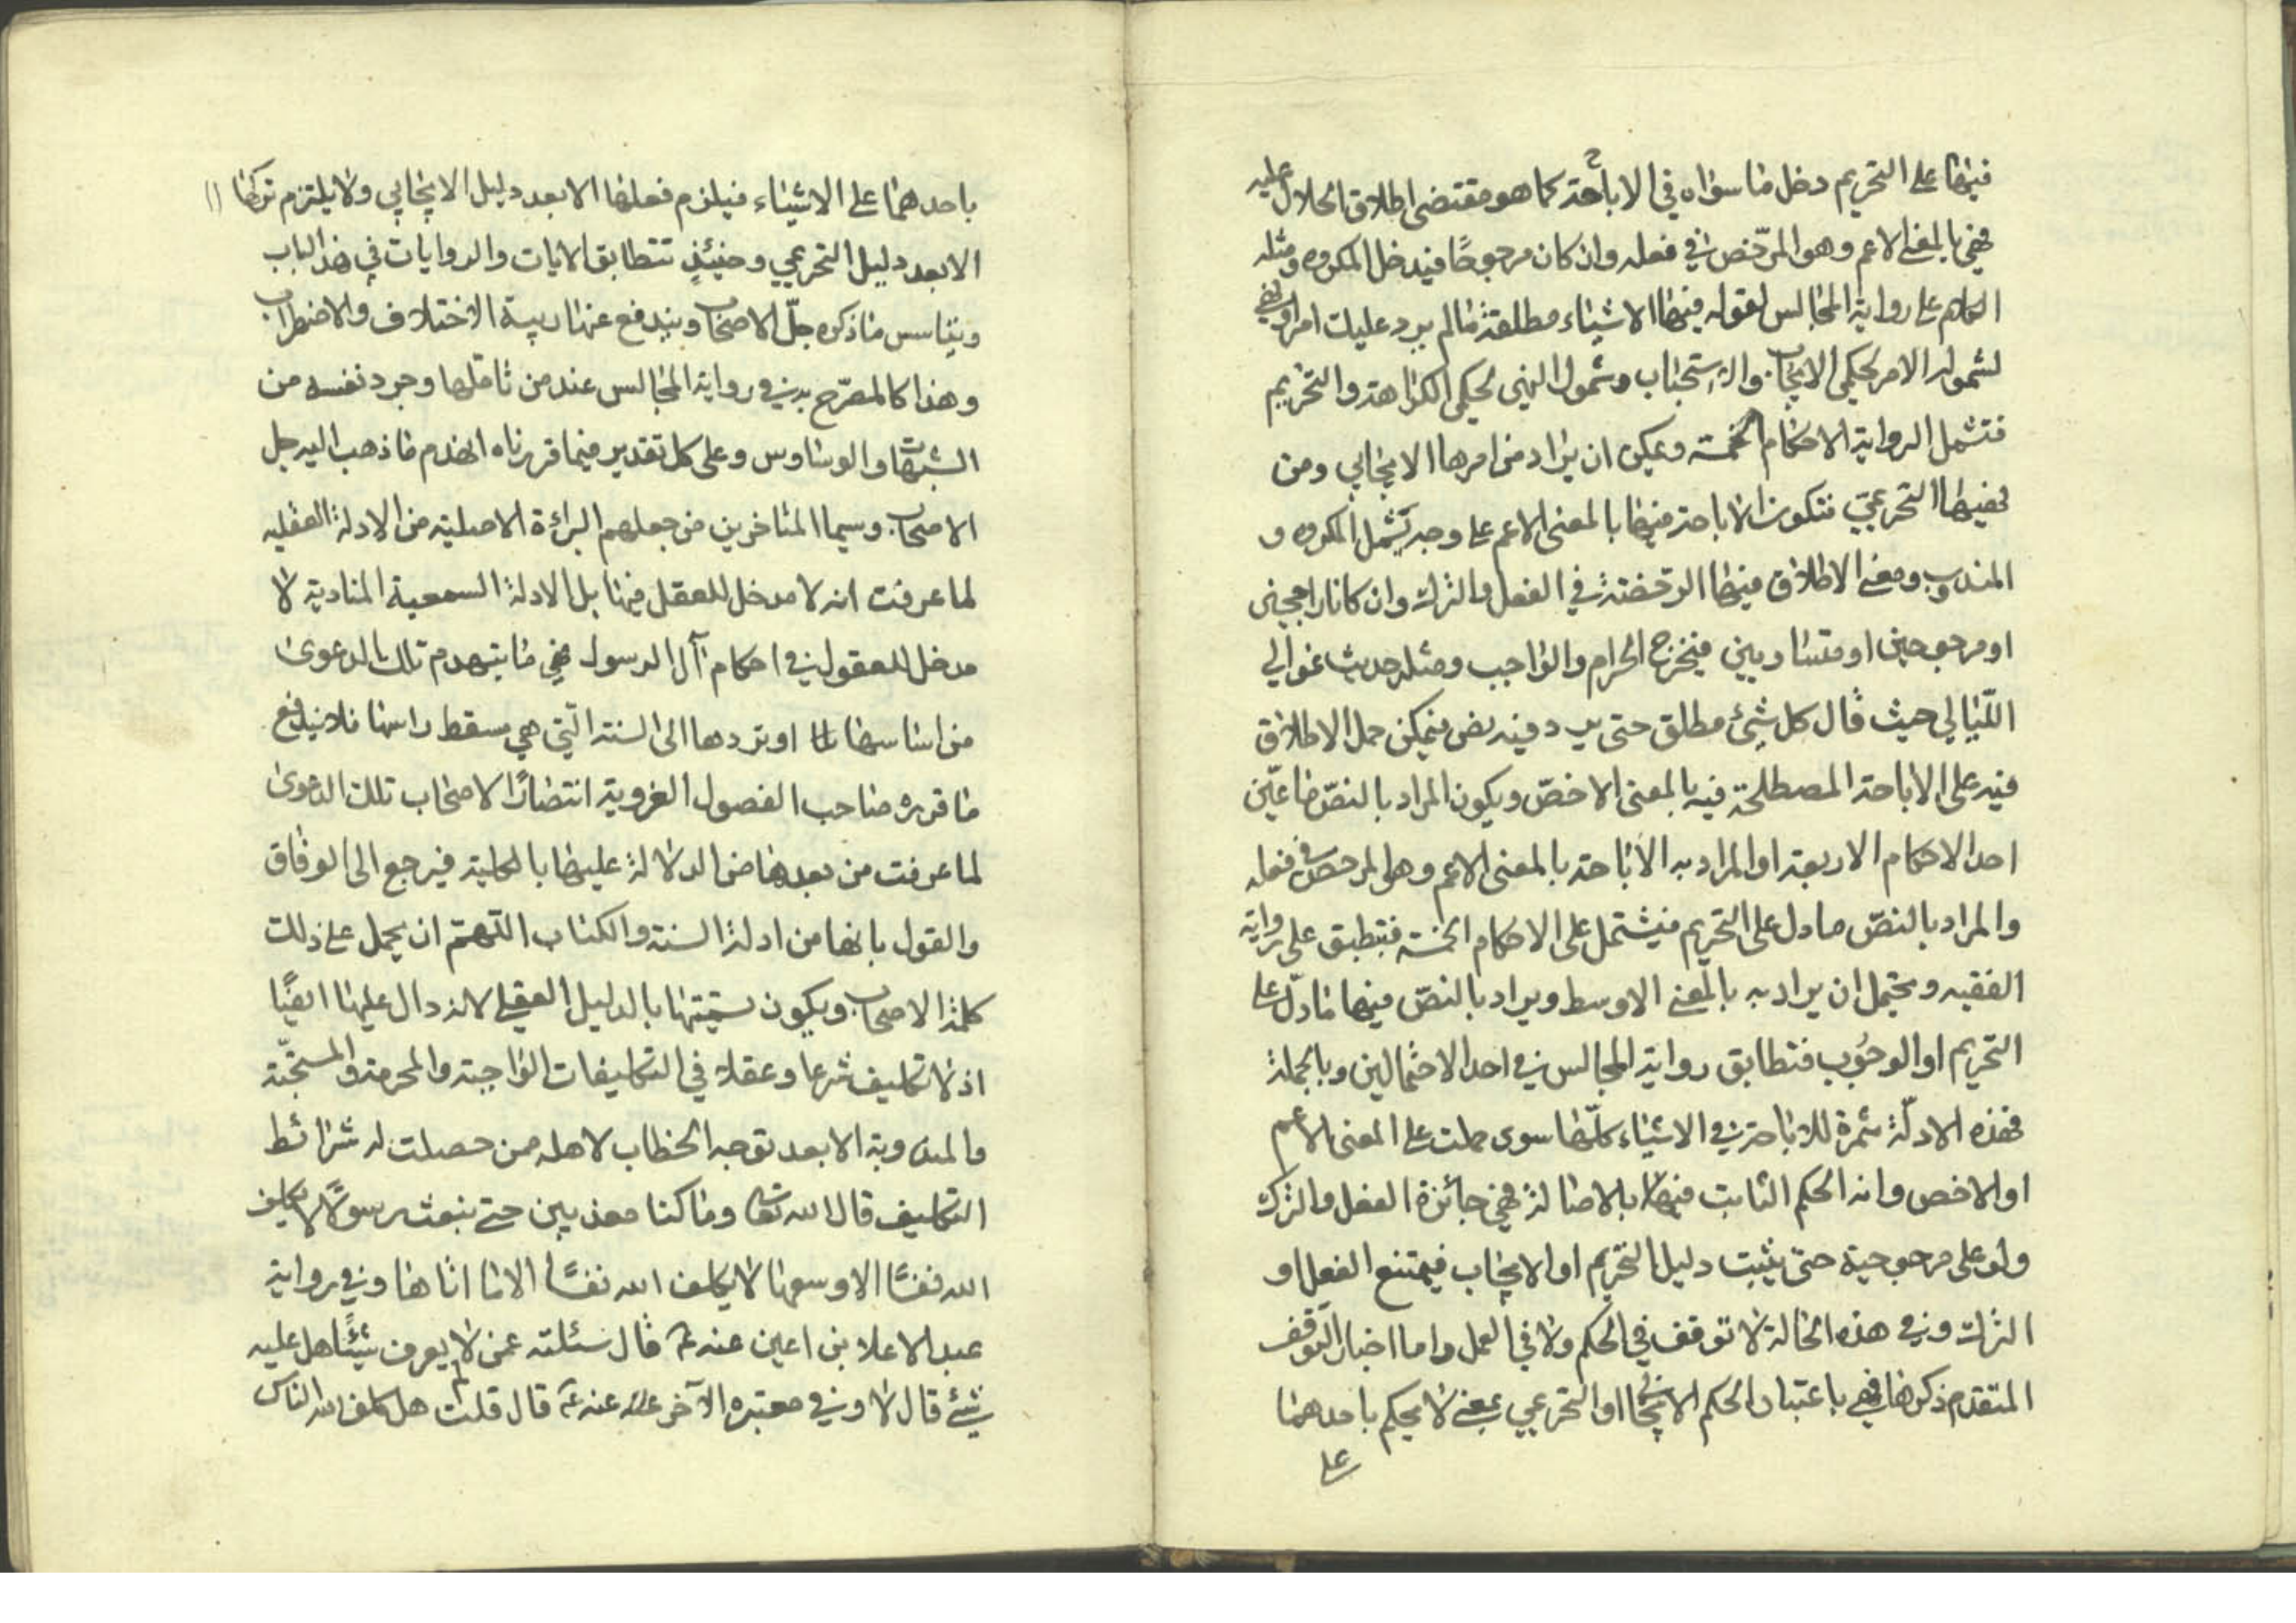 فيها على التحريم دخل ما سواه في الاباحة كما هو مقتضى اطلاق الحلال عليه
فهي بالمعنى الاعم وهو المرخص في فعله وان كان مرجوحًا فيدخل المكروه ومثله
الكلام على رواية المجالس لقوله فيها الاشياء مطلقة ما لم يرد عليك امر او نهي
لشمول الامر لحكمي الايجاب والاستحباب وشمول النهي لحكمي الكراهة والتحريم
فتشمل الرواية الاحكام الخمسة ويمكن ان يراد من امرها الايجابي ومن
نهيها التحريمي فتكون الاباحة فيها بالمعنى الاعم على وجه يشمل المكروه و
المندوب ومعنى الاطلاق فيها الرخصة في الفعل والترك وان كانا راجحين
او مرجوحين او متساويين فيخرج الحرام والواجب ومثله حديث غوالي
اللّيالي حيث قال كل شيء مطلق حتى يرد فيه نص فيمكن حمل الاطلاق
فيه على الاباحة المصطلحة فيه بالمعنى الاخصّ ويكون المراد بالنصّ ما عيّن
احد الاحكام الاربعة او المراد به الاباحة بالمعنى الاعم وهو المرخص في فعله
والمراد بالنصّ ما دل على التحريم فيشتمل على الاحكام الخمسة فتبطبق على رواية
الفقيه ويحتمل ان يراد به بالمعنى الاوسط ويراد بالنصّ فيها ما دلّ على
التحريم او الوجوب فتطابق رواية المجالس في احد الاحتمالين وبالجملة
فهذه الادلّة مثمرة للاباحة في الاشياء كلّها سوى حملت على المعنى الاعم
او الاخص وانه الحكم الثابت فيها بالاصالة فهي جائزة الفعل والترك
ولو على مرجوحية حتى يثبت دليل التحريم او الايجاب فيمتنع الفعل او
الترك وفي هذه الحالة لا توقف في الحكم ولا في العمل واما اخبار التوقف
المتقدم ذكرها فهي باعتبار الحكم الايجابي او التحريمي بمعنى لا يحكم باحدهما
على
باحدهما على الاشياء فيلزم فعلها الا بعد دليل الايجابي ولا يلتزم تركها
الا بعد دليل التحريمي وحينئذٍ تتطابق الايات والروايات في هذا الباب
ما ذكره جلّ الاصحاب ويندفع عنها ريبة الاختلاف والاضطراب
وهذا كالمصرّح به في رواية المجالس عند من تاملها وجرد نفسه من
الشبهات والوساوس وعلى كل تقدير فيما قررناه انهدم ما ذهب اليه جل
الاصحاب وسيما المتاخرين من جعلهم البراءة الاصلية من الادلة العقليه
لما عرفت انه لا مدخل للعقل فيها بل الادلة السمعية المنادية لا
مدخل للعقول في احكام آل الرسول فهي ما بتهدم تلك الدعوى
من اساسها او تردها الى السنة الّتي هي مسقط راسها فلا يندفع
ما قرره صاحب الفصول الغروية انتصارًا لاصحاب تلك الدعوى
لما عرفت من الدلالة عليها بالكلية فيرجع الى الوفاق
والقول بانها من ادلة السنة والكتاب اللّهم ان يحمل على ذلك
كلمة الاصحاب ويكون تسميتها بالدليل العقلي لانه دال عليها ايضًا
اذ لا تكليف شرعا وعقلا في التكليفات الواجبة والمحرمة والمستحبّة
والمندوبة الا بعد توجه الخطاب لاهله ممن حصلت له شرائط
التكليف قال الله تعالى وما كنا معذبين حتى نبعث رسولًا لا يكلف
الله نفسًا الا وسعها لا يكلف الله نفسًا الا ما اتاها وفي رواية
عبد الاعلا بن اعين عنه ع قال سئلته عمن لا يعرف شيئًا هل عليه
شيئ قال لا وفي معتبره الآخر عنه ع قال قلت هل كلف الله الناس